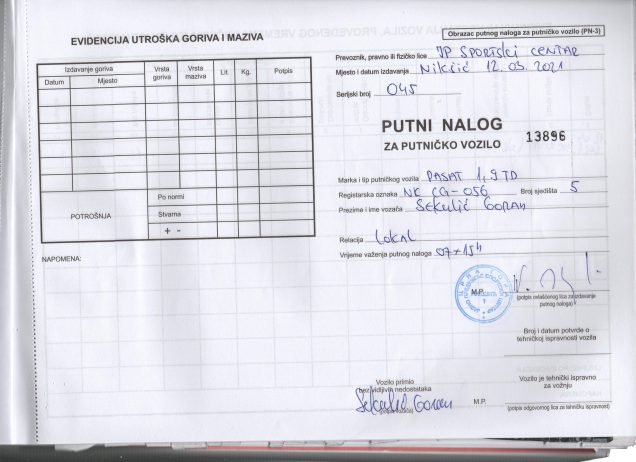 EVIDENCIJA UTROŠKA GORIVA I MAZIVA
Izdavanje goriva
Datum Mjesto Vrsta goriva Vrsta maziva Lit. Kg. Potpis
POTROŠNJA
Po normi
Stvarna
+ -
NAPOMENA:
Obrazac putnog naloga za putničko vozilo (PN-3)
Prevoznik, pravno ili fizičko lice JP SPORTSKI CENTAR
Mjesto i datum izdavanja Nikšić 12.03.2021
Serijski broj 045
PUTNI NALOG
ZA PUTNIČKO VOZILO
13896
Marka i tip putničkog vozila PASAT 1,9 TD
Registarska oznaka NK CG-056 Broj sjedišta 5
Prezime i ime vozača SEKULIĆ GORAN
Relacija LOKAL
Vrijeme važenja putnog naloga 07+15h
M.P.
(potpis ovlašćenog lica za izdavanje
putnog naloga)
Broj i datum potvrde o
tehničkoj ispravnosti vozila
Vozilo primio
bez vidljivih nedostataka
Sekulić Goran
(potpis vozača)
Vozilo je tehnički ispravno
za vožnju
M.P.
(potpis odgovornog lica za tehničku ispravnost)